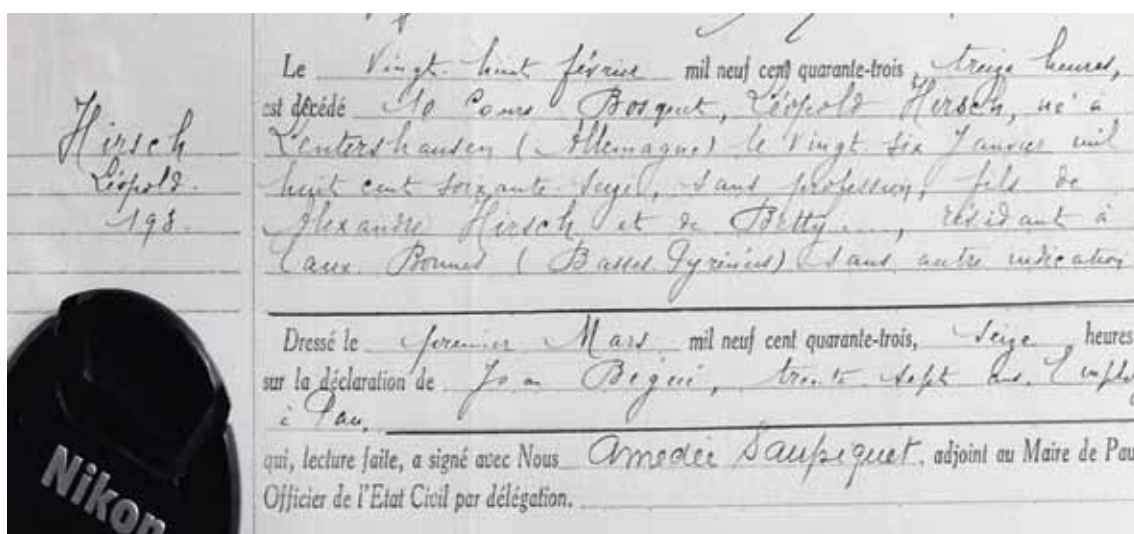 Hirsch
Léopold.
198.
Le Vingt-huit février mil neuf cent quarante-trois, treize heures,
est décédé 10 Cours Bosquet, Léopold Hirsch, né à
Lentershausen (Allemagne) le Vingt six Janvier mil
huit cent soixante-seize, sans profession, fils de
Alexandre Hirsch et de Betty...., résidant à
Eaux-Bonnes (Basses-Pyrénées) sans autre indication
Dressé le premier Mars mil neuf cent quarante-trois, seize heures
sur la déclaration de Begué, trente sept ans, Employ
à Pau,
qui, lecture faite, a signé avec Nous Amédée Saupiquet, adjoint au Maire de Pau
Officier de l'Etat Civil par délégation.
Nikon